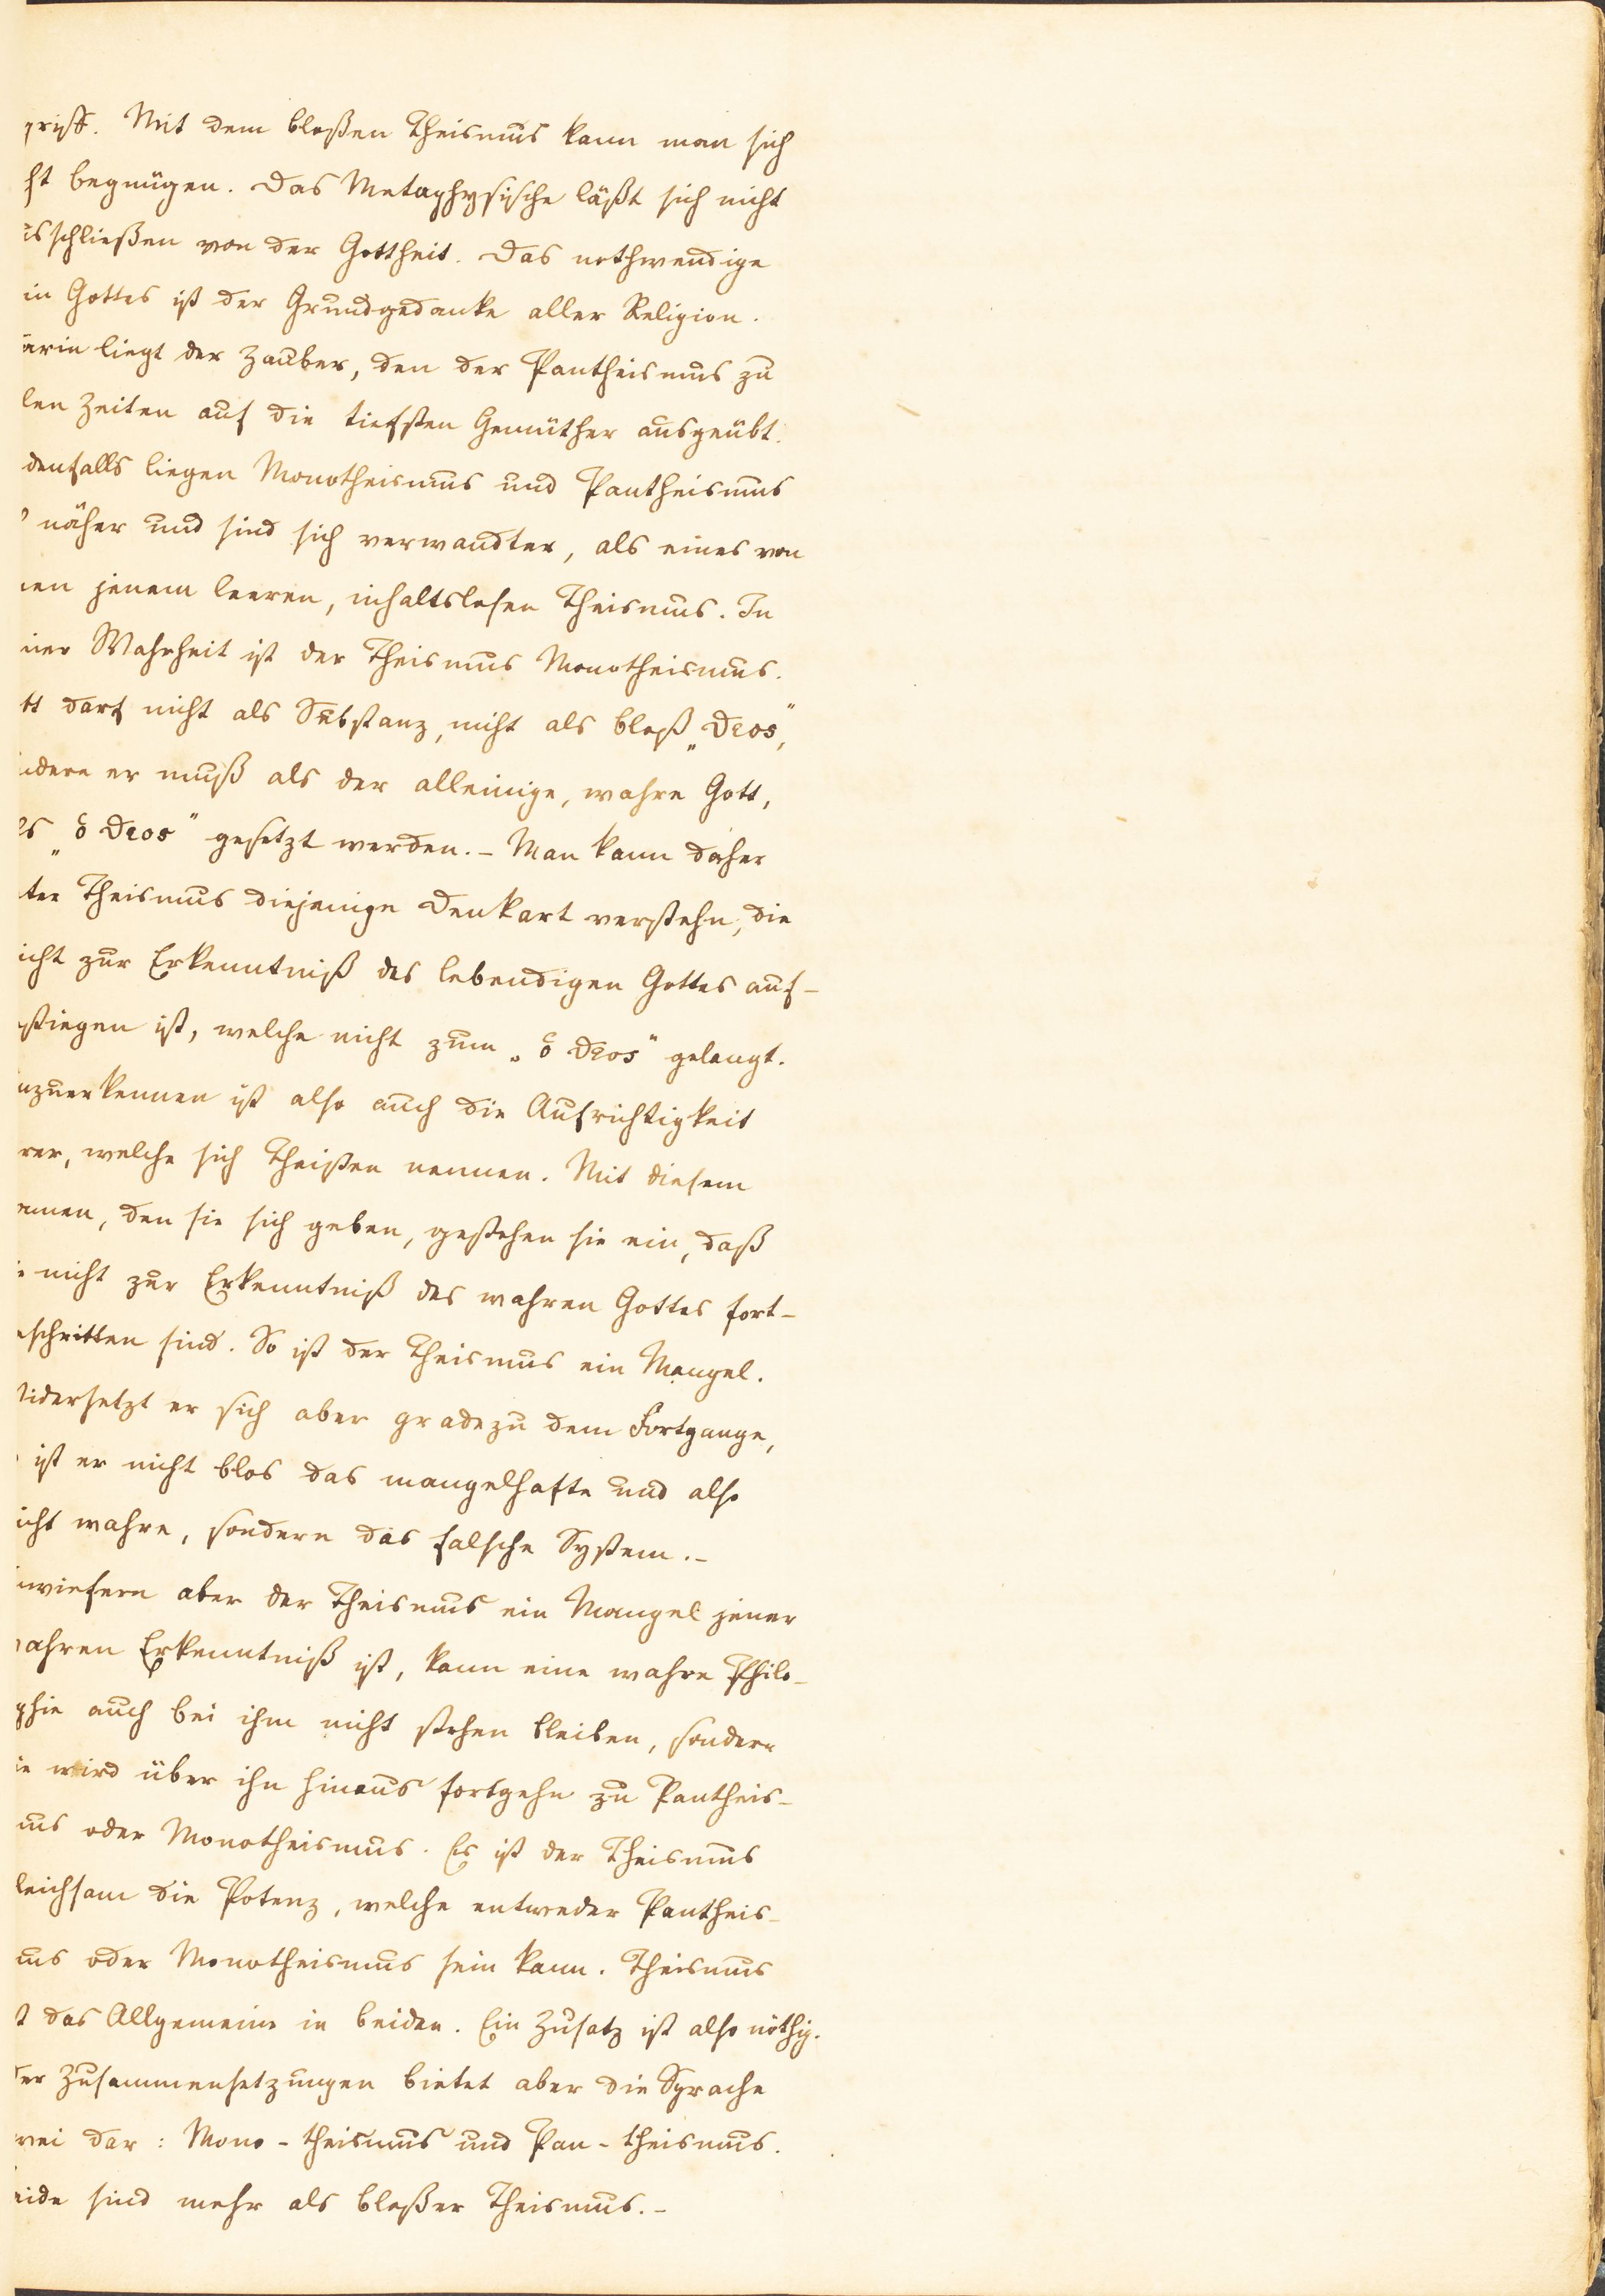 griff. Mit dem bloßen Theismus kann man sich
ht begnügen. Das Metaphysische läßt sich nicht
usschließen von der Gottheit. Das nothwendige
in Gottes ist der Grundgedanke aller Religion.
arin liegt der Zauber, den der Pantheismus zu
len Zeiten auf die tiefsten Gemüther ausgeübt.
denfalls liegen Monotheismus und Pantheismus
näher und sind sich verwandter, als eines von
nen jenem leeren, inhaltslosen Theismus. In
ner Wahrheit ist der Theismus Monotheismus.
tt darf nicht als Substanz, nicht als bloß „θεος“,
ndern er muß als der alleinige, wahre Gott,
ls „ὁ θεος“ gesetzt werden. – Man kann daher
ter Theismus diejenige Denkart verstehn, die
icht zur Erkenntniß des lebendigen Gottes auf-
stiegen ist, welche nicht zum „ὁ θεος“ gelangt.
nzuerkennen ist also auch die Aufrichtigkeit
rer, welche sich Theisten nennen. Mit diesem
amen, den sie sich geben, gestehen sie ein, daß
e nicht zur Erkenntniß des wahren Gottes fort-
eschritten sind. So ist der Theismus ein Mangel.
Widersetzt er sich aber gradezu dem Fortgange,
ist er nicht blos das mangelhafte und also
icht wahre, sondern das falsche System. –
nwiefern aber der Theismus ein Mangel jener
wahren Erkenntniß ist, kann eine wahre Philo-
phie auch bei ihm nicht stehen bleiben, sondern
ie wird über ihn hinaus fortgehn zu Pantheis-
us oder Monotheismus. Es ist der Theismus
leichsam die Potenz, welche entweder Pantheis-
us oder Monotheismus sein kann. Theismus
t das Allgemeine in beiden. Ein Zusatz ist also nöthig.
er Zusammensetzungen bietet aber die Sprache
wei dar: Mono-theismus und Pan-theismus.
eide sind mehr als bloßer Theismus. –